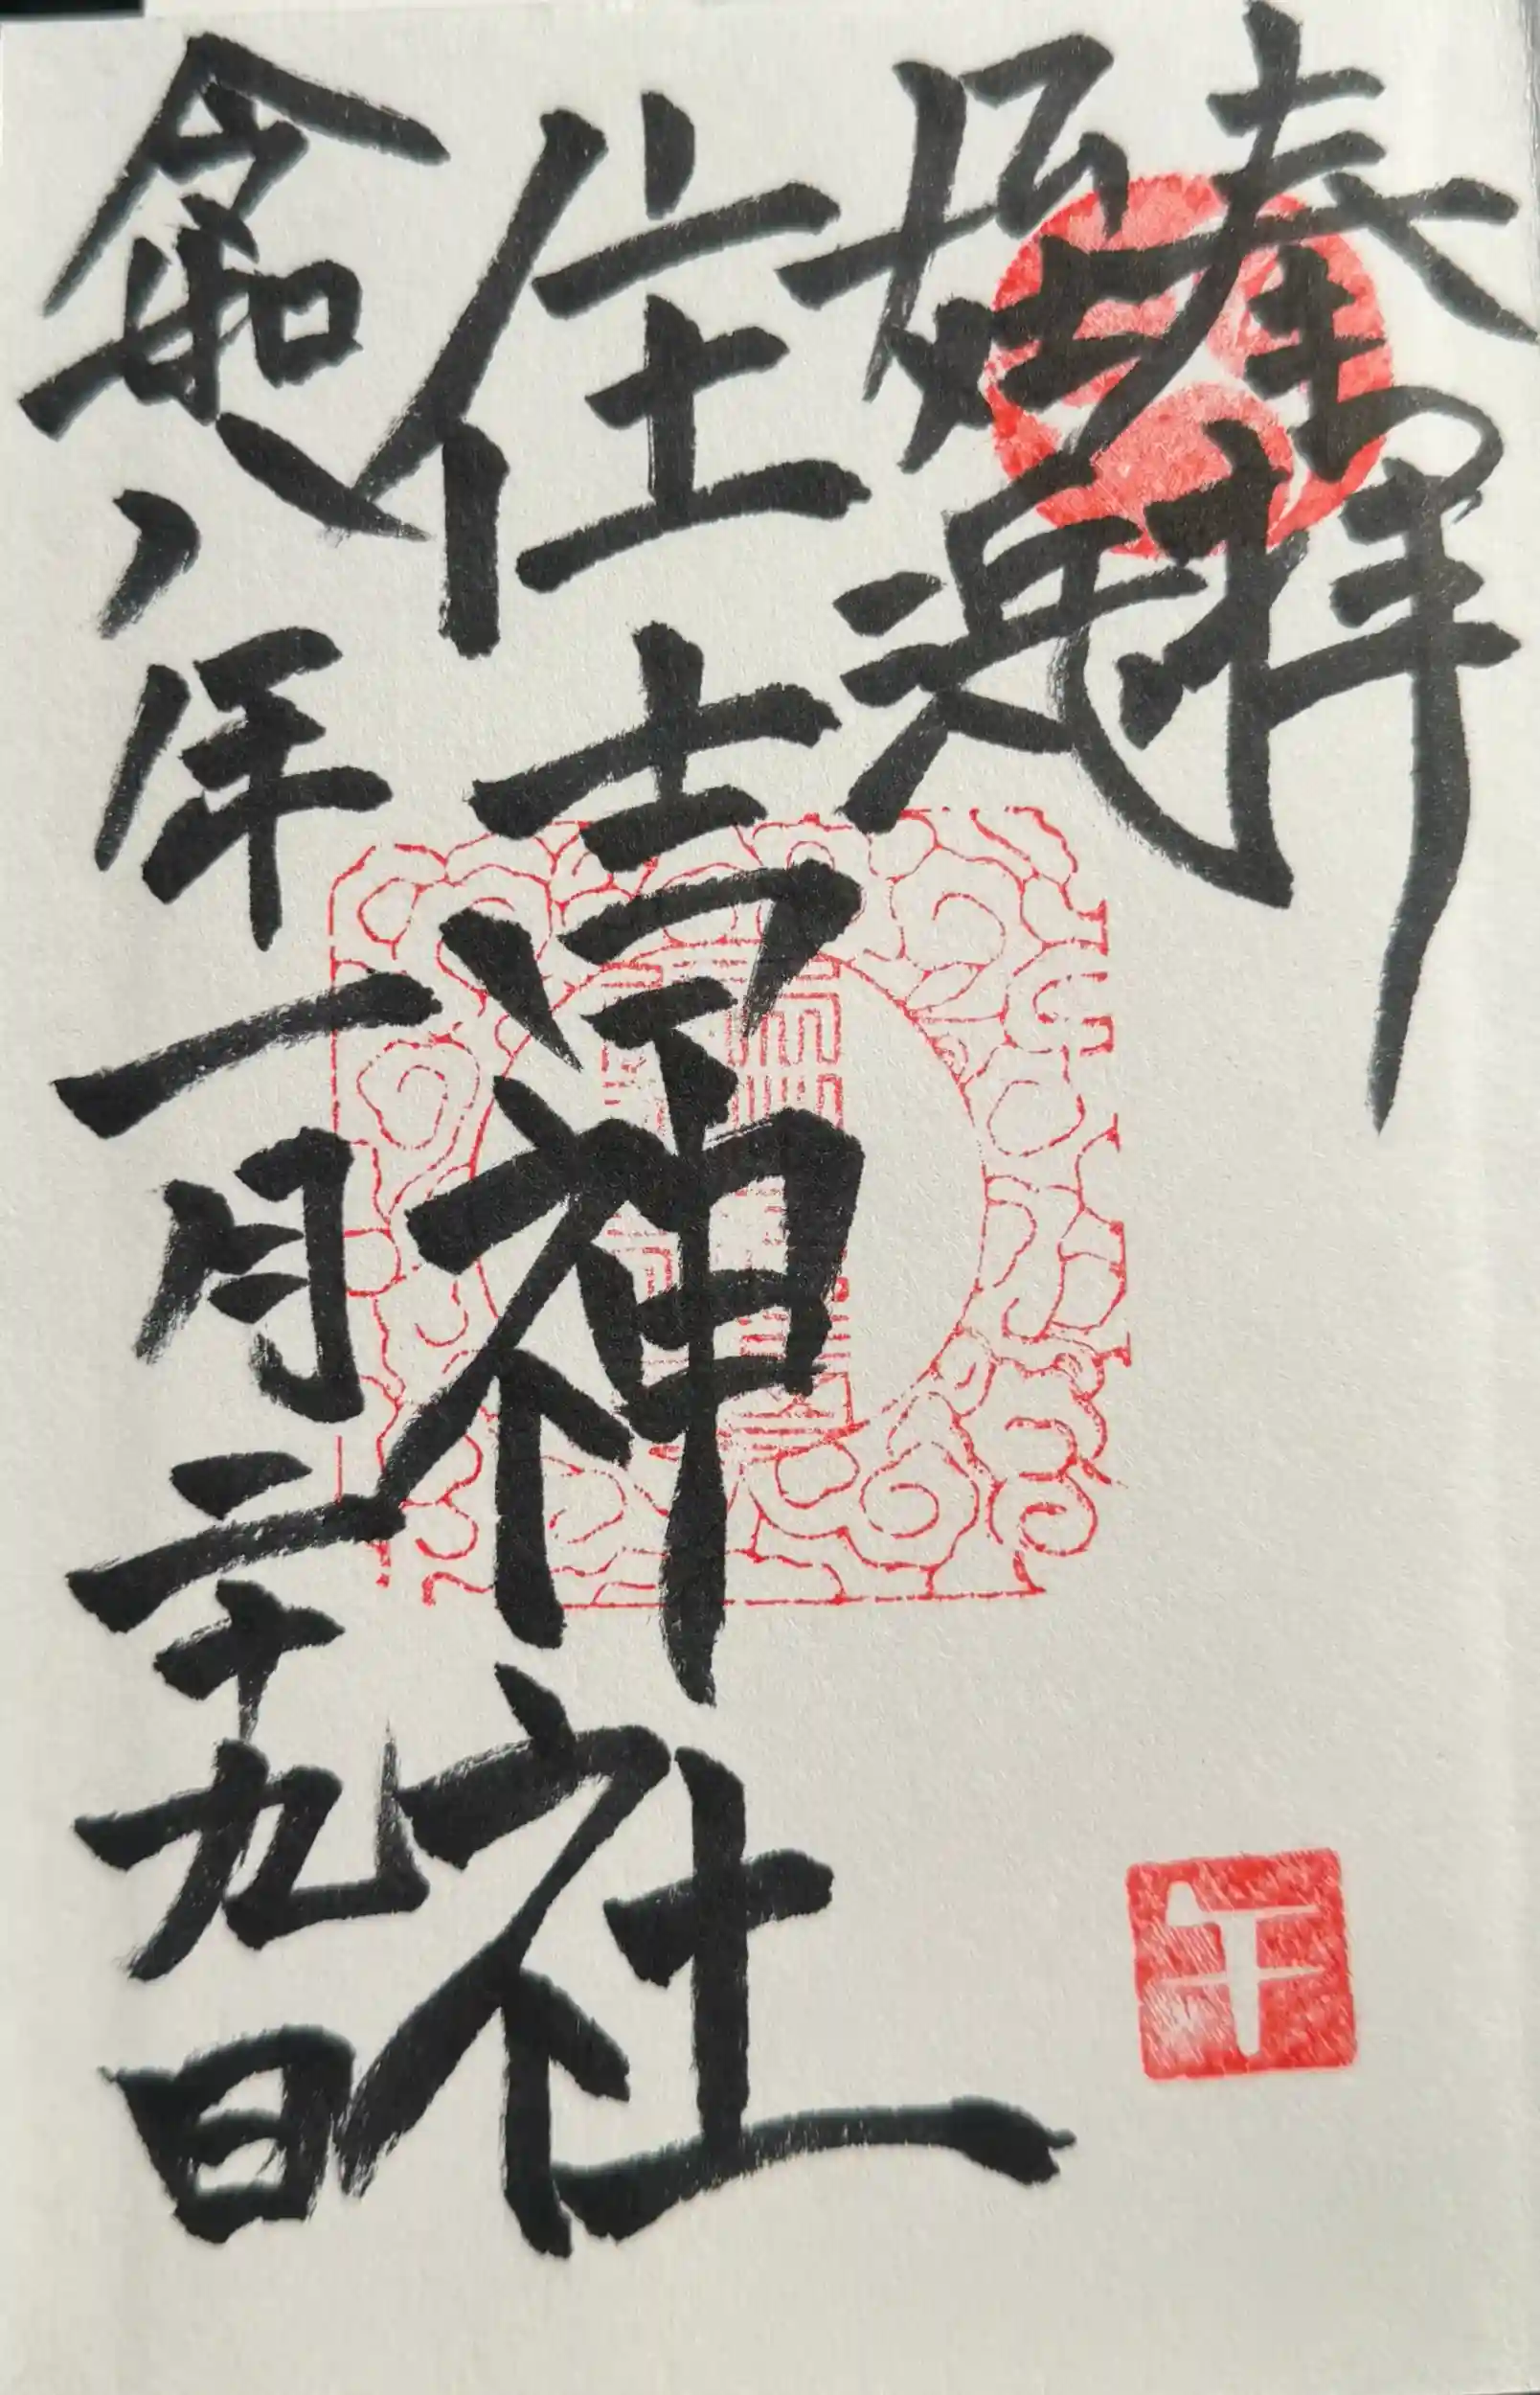 奉拝
姫島
住吉神社
令和八年一月二十九日
午